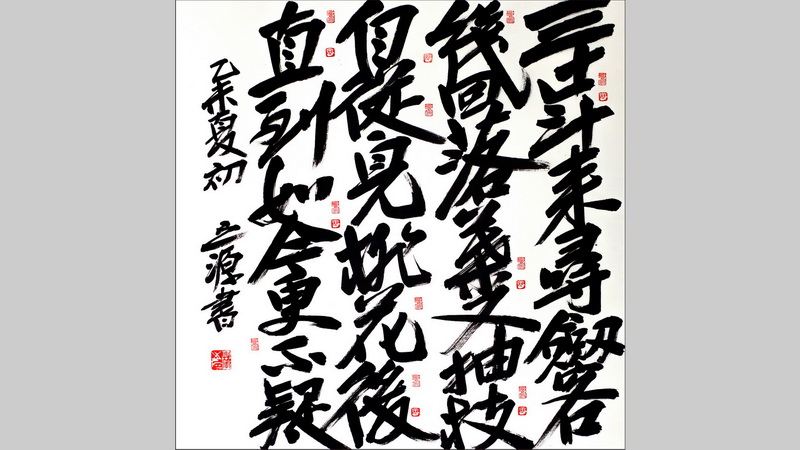 三十年来尋劍客
幾回落葉又抽枝
自從一見桃花後
直到如今更不疑
乙未夏初 立源書